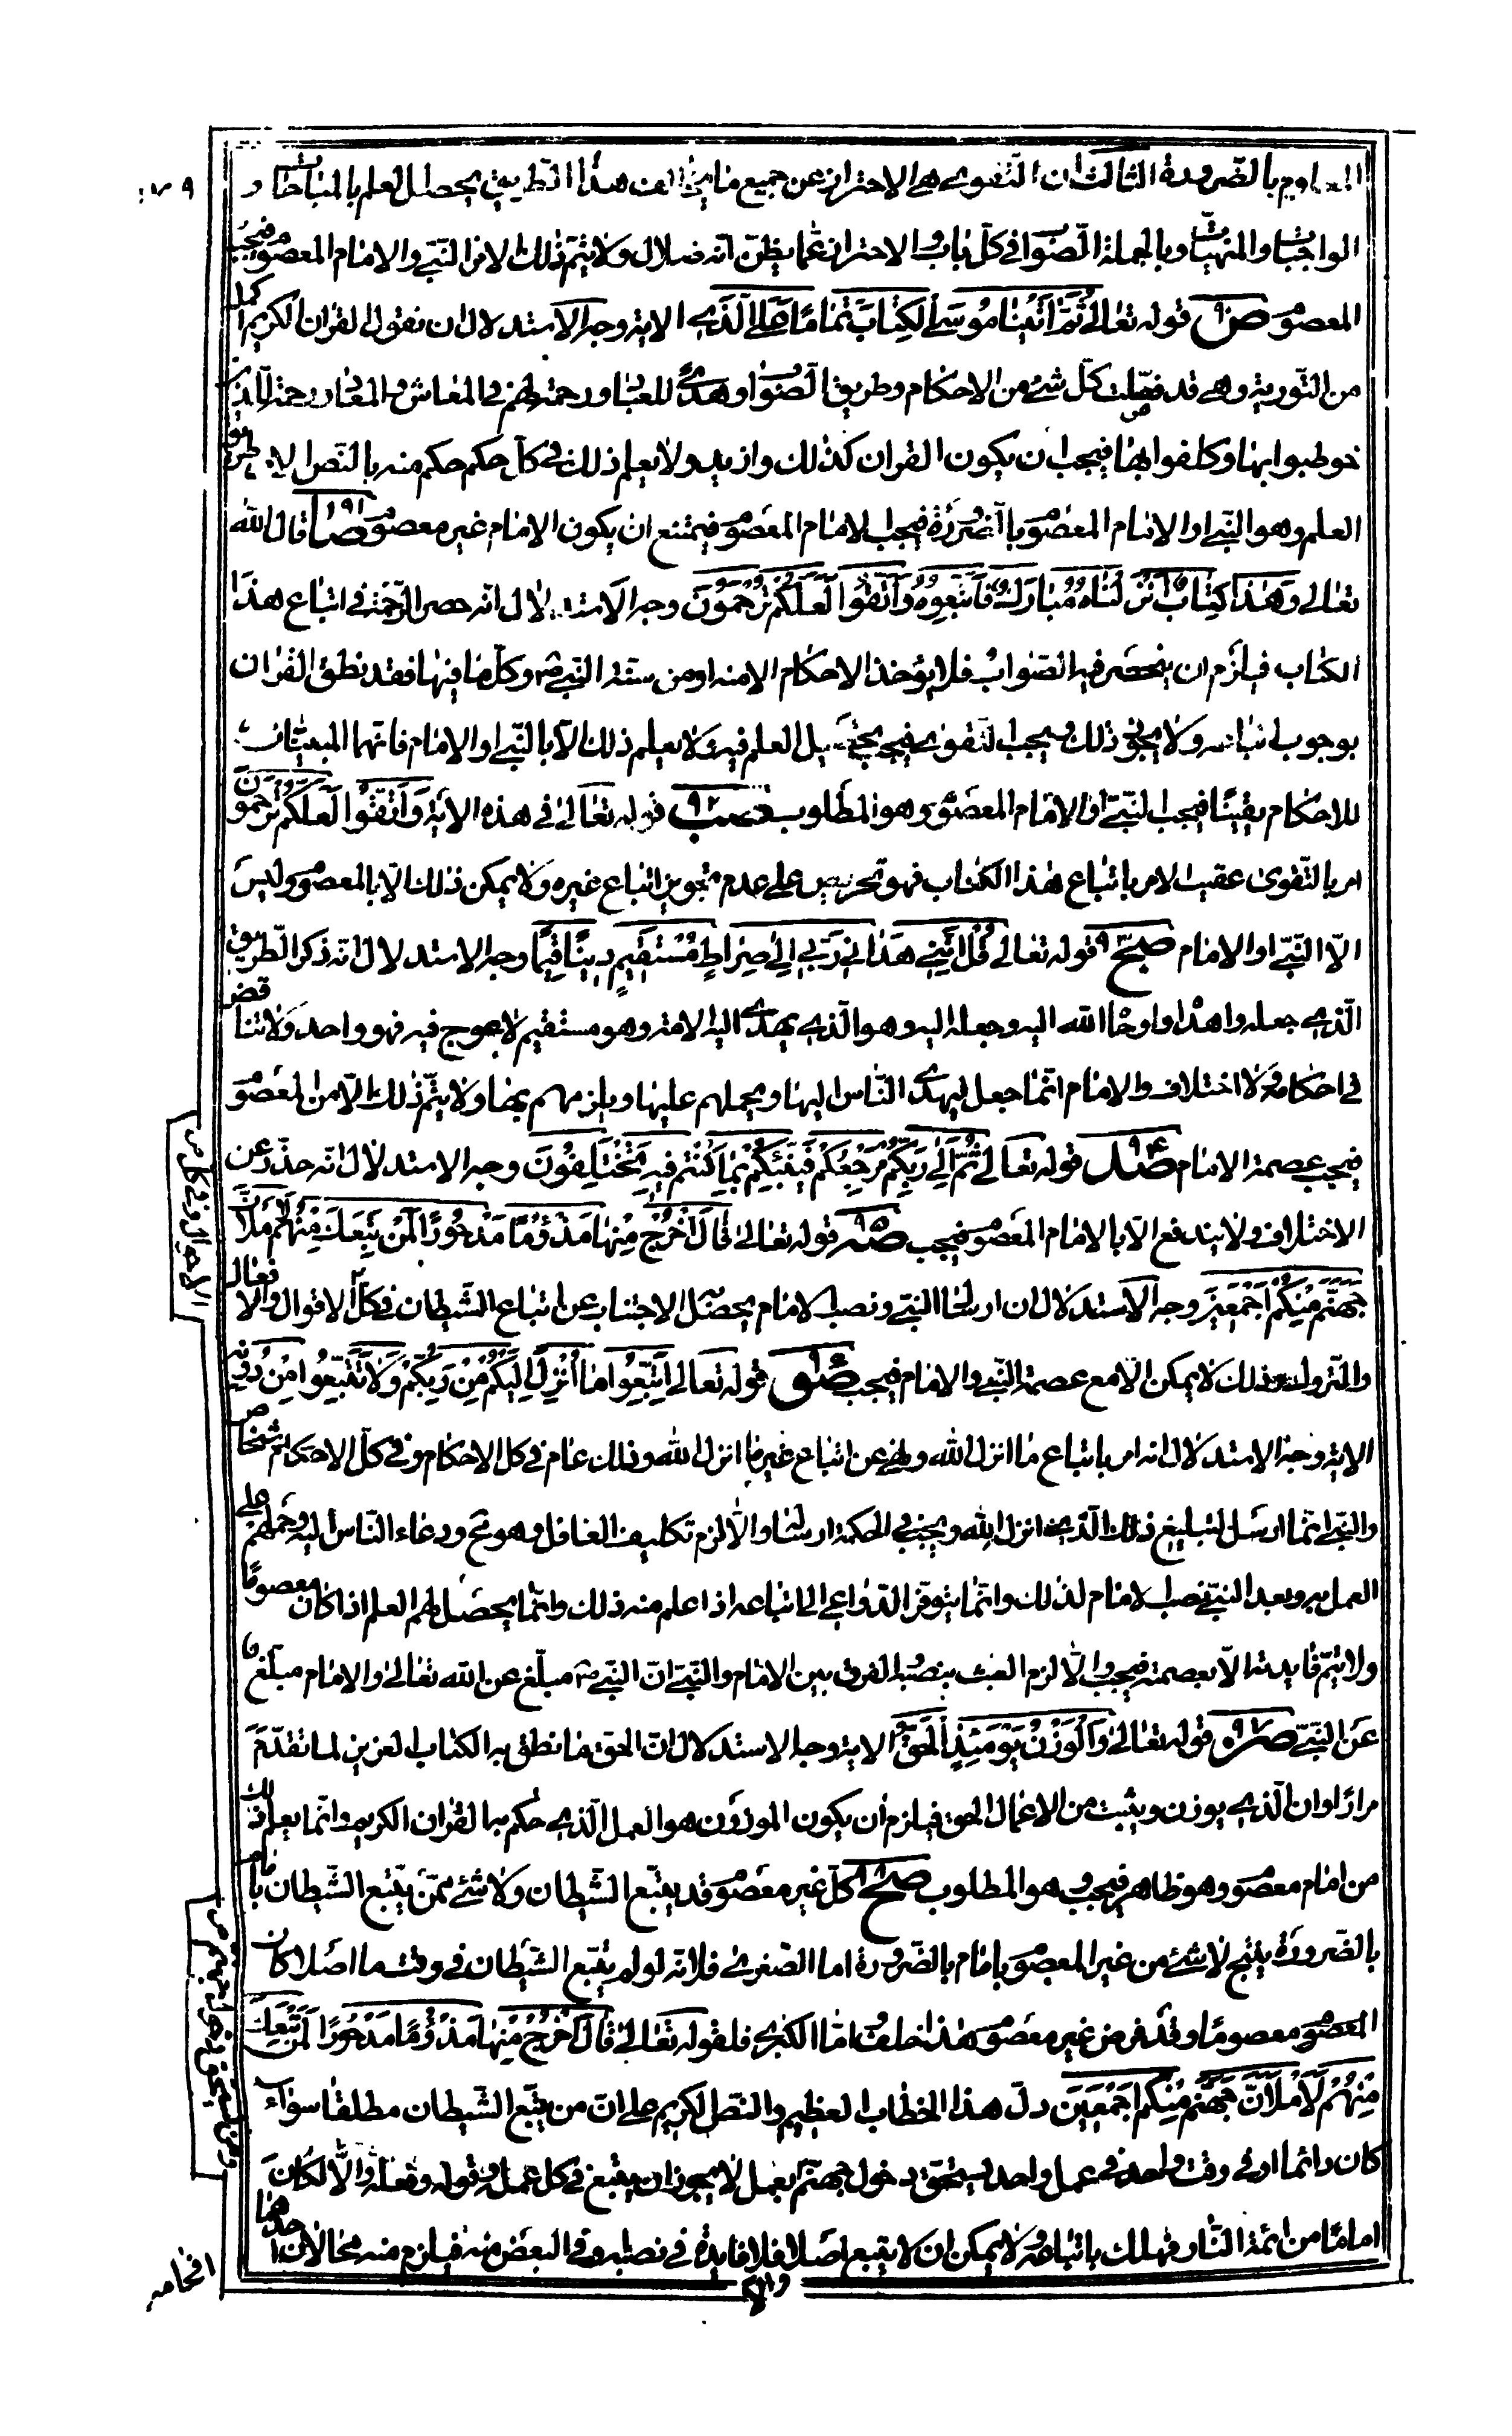 بالضرورة الثالث ان التقوى هى الاحتراز عن جميع ما هذا الطريق يحصل العلم بالمباحات و
الواجبات والمنهيات وبالجملة الصواب فى كل باب والاحتراز عما يظن انه ضلال ولا يتم ذلك الا من النبى والامام المعصوم فيجب
المعصوم ص قوله تعالى ثُمَّ اٰتَيْنَا مُوسَى الْكِتَابَ تَمَامًا عَلَى الَّذِى الاية وجه الاستدلال ان نقول القران الكريم اكمل
من التورية وهى قد فصلت كل شئ من الاحكام وطريق الصواب وهدى للعباد ورحمة لهم فى المعاش والمعاد رحمة للذين
خوطبوا بها وكلفوا بها فيجب ان يكون القران كذلك وازيد ولا يعلم ذلك فى كل حكم حكم منه بالنص الا طريق
العلم وهو النبى او الامام المعصوم بالضرورة فيجب الامام المعصوم فيمتنع ان يكون الامام غير معصوم صا ٩١ قال الله
تعالى وَهٰذَا كِتَابٌ اَنْزَلْنَاهُ مُبَارَكٌ فَاتَّبِعُوهُ وَاتَّقُوا لَعَلَّكُمْ تُرْحَمُونَ وجه الاستدلال انه حصر الرحمة فى اتباع هذا
الكتاب فيلزم ان ينحصر فيه الصواب فلا يؤخذ الاحكام الا منه او من سنة النبى ص وكل ما فيها فقد نطق القران
بوجوب اتباعه ولا يجوز ذلك فيجب التقوى فيجب تحصيل العلم فيه ولا يعلم ذلك الا بالنبى او الامام فانهما المبينان
للاحكام يقينا فيجب النبى او الامام المعصوم وهو المطلوب صب ٩٢ قوله تعالى فى هذه الاية وَاتَّقُوا لَعَلَّكُمْ تُرْحَمُونَ
امر بالتقوى عقيب الامر باتباع هذا الكتاب فهو تحريص على عدم تجويز اتباع غيره ولا يمكن ذلك الا بالمعصوم وليس
الا النبى او الامام صج ٩٣ قوله تعالى قُلْ اِنَّنِى هَدَانِى رَبِّى اِلٰى صِرَاطٍ مُسْتَقِيمٍ دِينًا قِيَمًا وجه الاستدلال انه ذكر الطريق
الذى جعله واهداه واوحاه الله اليه وجعله اليه وهو الذى يهدى اليه الامة وهو مستقيم لا عوج فيه فهو واحد ولا تناقض
فى احكامه ولا اختلاف والامام انما جعل ليهدى الناس اليها ويحملهم عليها ويلزمهم بها ولا يتم ذلك الا من المعصوم
فيجب عصمة الامام صد ٩٤ قوله تعالى ثُمَّ اِلٰى رَبِّكُمْ مَرْجِعُكُمْ فَيُنَبِّئُكُمْ بِمَا كُنْتُمْ فِيهِ تَخْتَلِفُونَ وجه الاستدلال انه حذر عن
الاختلاف ولا يندفع الا بالامام المعصوم فيجب صه ٩٥ قوله تعالى قَالَ اخْرُجْ مِنْهَا مَذْؤُمًا مَدْحُورًا لَمَنْ تَبِعَكَ مِنْهُمْ لَاَمْلَاَنَّ
جَهَنَّمَ مِنْكُمْ اَجْمَعِينَ وجه الاستدلال ان ارسال النبى ونصب الامام يحصل الاجتناب عن اتباع الشيطان فى كل الاقوال والافعال
والتروك وذلك لا يمكن الا مع عصمة النبى والامام فيجب صو ٩٦ قوله تعالى اِتَّبِعُوا مَا اُنْزِلَ اِلَيْكُمْ مِنْ رَبِّكُمْ وَلَا تَتَّبِعُوا مِنْ دُونِهِ
الاية وجه الاستدلال انه امر باتباع ما انزل الله ونهى عن اتباع غير ما انزل الله وذلك عام فى كل الاحكام وفى كل الاشخاص
والنبى انما ارسل لتبليغ ذلك الذى انزل الله ويجب فى الحكمة ارساله والا لزم تكليف الغافل وهو مح ودعاء الناس اليه وحملهم على
العمل به وبعد النبى نصب الامام لذلك وانما يتوفر الدواعى الى اتباعه اذا علم منه ذلك وانما يحصل لهم العلم اذا كان معصوما
ولا يتم فايدته الا بعصمته فيجب والا لزم العبث بنصبه الفرق بين الامام والنبى ان النبى ص مبلغ عن الله تعالى والامام مبلغ
عن النبى صز ٩٧ قوله تعالى وَالْوَزْنُ يَوْمَئِذٍ الْحَقُّ الاية وجه الاستدلال ان الحق ما نطق به الكتاب العزيز لما تقدم
مرارا وان الذى يوزن ويثبت من الاعمال الحق فيلزم ان يكون الموزون هو العمل الذى حكم به القران الكريم وانما يعلم ذلك
من امام معصوم وهو ظاهر فيجب وهو المطلوب صح ٩٨ كل غير معصوم قد يتبع الشيطان ولا شئ ممن يتبع الشيطان بامام
بالضرورة ينتج لا شئ من غير المعصوم بامام بالضرورة اما الصغرى فلانه لو لم يتبع الشيطان فى وقت ما اصلا كان
المعصوم معصوما وقد فرض غير معصوم هذا خلف واما الكبرى فلقوله تعالى قَالَ اخْرُجْ مِنْهَا مَذْؤُمًا مَدْحُورًا لَمَنْ تَبِعَكَ
مِنْهُمْ لَاَمْلَاَنَّ جَهَنَّمَ مِنْكُمْ اَجْمَعِينَ دل هذا الخطاب العظيم والنص الكريم على ان من يتبع الشيطان مطلقا سواء
كان دائما او فى وقت واحد فى عمل واحد يستحق دخول جهنم بعمل لا يجوز ان يتبع فى كل عمل وقوله وفعله والا لكان
اماما من ائمة النار فهلك باتباعه ولا يمكن ان لا يتبع اصلا فلا فايدة فى نصبه وفى البعض منه فيلزم منه محالان احدهما